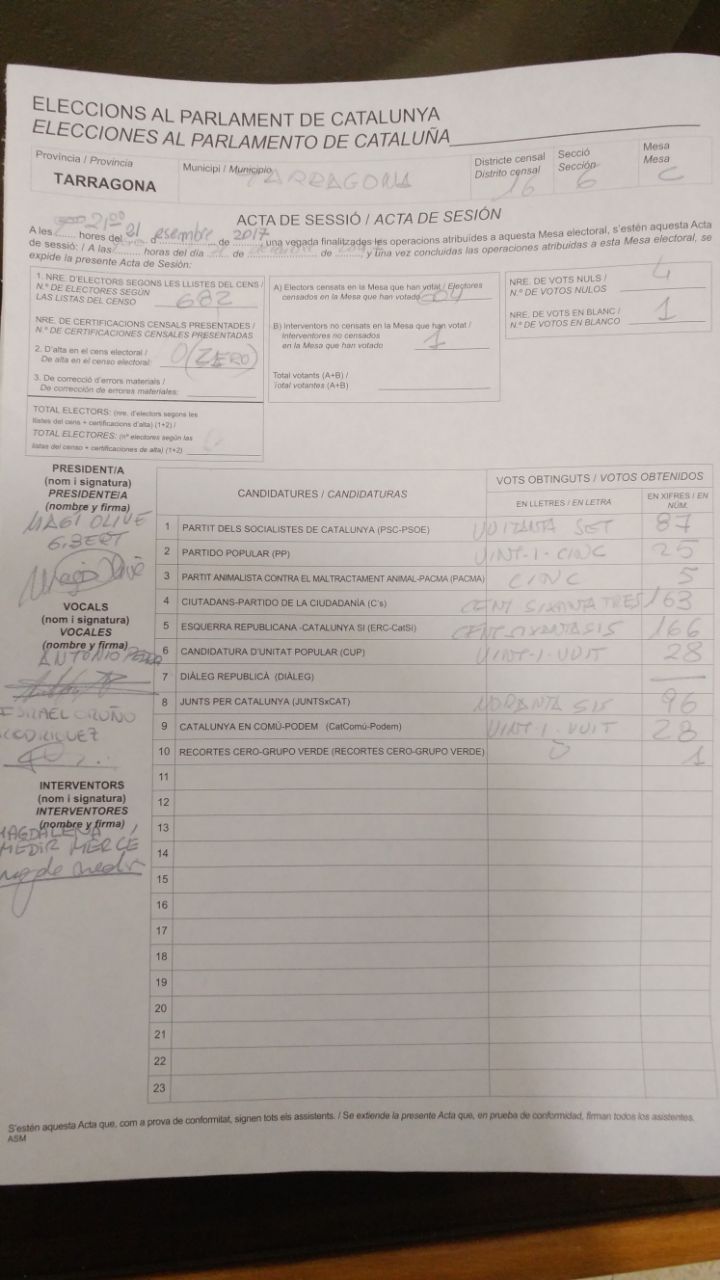 ELECCIONS AL PARLAMENT DE CATALUNYA
ELECCIONES AL PARLAMENTO DE CATALUÑA
Província / Provincia
TARRAGONA
Municipi / Municipio
TARRAGONA
Districte censal
Distrito censal
16
Secció
Sección
6
Mesa
Mesa
C
ACTA DE SESSIÓ / ACTA DE SESIÓN
A les 21:00 hores del 21 d desembre de 2017, una vegada finalitzades les operacions atribuïdes a aquesta Mesa electoral, s'estén aquesta Acta
de sessió: / A las hores del día 21 de de 2017 y una vez concluidas las operaciones atribuidas a esta Mesa electoral, se
expide la presente Acta de Sesión:
1. NRE. D'ELECTORS SEGONS LES LLISTES DEL CENS /
N.º DE ELECTORES SEGÚN
LAS LISTAS DEL CENSO 682
NRE. DE CERTIFICACIONS CENSALS PRESENTADES /
N.º DE CERTIFICACIONES CENSALES PRESENTADAS
2. D'alta en el cens electoral /
De alta en el censo electoral: 0 (ZERO)
3. De correcció d'errors materials /
De corrección de errores materiales:
TOTAL ELECTORS: (nre. d'electors segons les
llistes del cens + certificacions d'alta) (1+2) /
TOTAL ELECTORES: (nº electores según las
listas del censo + certificaciones de alta) (1+2)
A) Electors censats en la Mesa que han votat / Electores
censados en la Mesa que han votado 604
B) Interventors no censats en la Mesa que han votat /
Interventores no censados
en la Mesa que han votado 1
Total votants (A+B) /
Total votantes (A+B)
NRE. DE VOTS NULS /
N.º DE VOTOS NULOS 4
NRE. DE VOTS EN BLANC /
N.º DE VOTOS EN BLANCO 1
PRESIDENT/A
(nom i signatura)
PRESIDENTE/A
(nombre y firma)
MAGI OLIVE
GIBERT
VOCALS
(nom i signatura)
VOCALES
(nombre y firma)
ANTONIO
ISRAEL ORUÑO
RODRIGUEZ
INTERVENTORS
(nom i signatura)
INTERVENTORES
(nombre y firma)
MAGDALENA
MEDIR MERCE
CANDIDATURES / CANDIDATURAS
VOTS OBTINGUTS / VOTOS OBTENIDOS
EN LLETRES / EN LETRA
EN XIFRES / EN
NÚM.
1 PARTIT DELS SOCIALISTES DE CATALUNYA (PSC-PSOE) VUITANTA SET 87
2 PARTIDO POPULAR (PP) VINT-I-CINC 25
3 PARTIT ANIMALISTA CONTRA EL MALTRACTAMENT ANIMAL-PACMA (PACMA) CINC 5
4 CIUTADANS-PARTIDO DE LA CIUDADANÍA (C's) CENT SIXANTA TRES 163
5 ESQUERRA REPUBLICANA -CATALUNYA SÍ (ERC-CatSí) CENT SIXANTASIS 166
6 CANDIDATURA D'UNITAT POPULAR (CUP) VINT-I-VUIT 28
7 DIÀLEG REPUBLICÀ (DIÀLEG) —
8 JUNTS PER CATALUNYA (JUNTSxCAT) NORANTA SIS 96
9 CATALUNYA EN COMÚ-PODEM (CatComú-Podem) VINT-I-VUIT 28
10 RECORTES CERO-GRUPO VERDE (RECORTES CERO-GRUPO VERDE) 1
11
12
13
14
15
16
17
18
19
20
21
22
23
S'estén aquesta Acta que, com a prova de conformitat, signen tots els assistents. / Se extiende la presente Acta que, en prueba de conformidad, firman todos los asistentes.
ASM